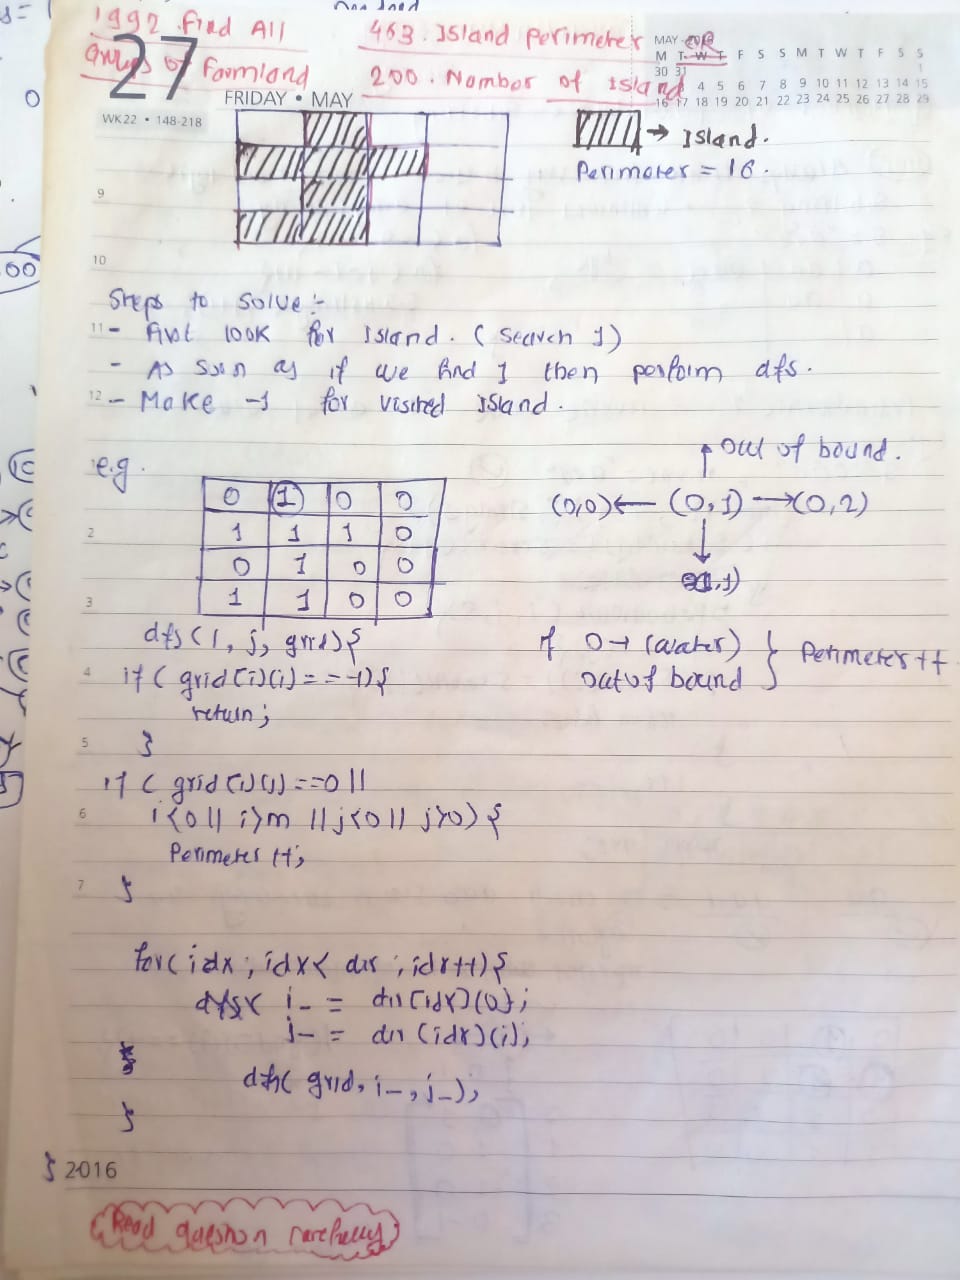 1992. Find All
Groups of Farmland
463. Island Perimeter
200. Nomber of Island
27
FRIDAY • MAY
WK 22 • 148-218
MAY
M T W T F S S M T W T F S S
30 31 1
4 5 6 7 8 9 10 11 12 13 14 15
16 17 18 19 20 21 22 23 24 25 26 27 28 29
→ Island.
Perimeter = 16.
9
10
Steps to solve :-
11 - First look for Island. (Search 1)
- As soon as if we find 1 then perform dfs.
12 - Make -1 for visited Island.
e.g.
0 1 0 0
2 1 1 1 0
0 1 0 0
3 1 1 0 0
out of bound.
(0,0) ← (0,1) → (0,2)
,1)
dfs(i, j, grid){
4 if( grid[i][j] == -1){
return;
5 }
if 0 → (water) } Perimeter++
out of bound
if( grid[i][j]==0 ||
6 i<0 || i>m || j<0 || j>0) {
Perimeter ++;
7 }
for(idx ; idx< dir ; idx++){
i_ = dir[idx][0];
j_ = dir[idx][i];
dfs( grid, i_, j_);
}
} 2016
Read question carefully